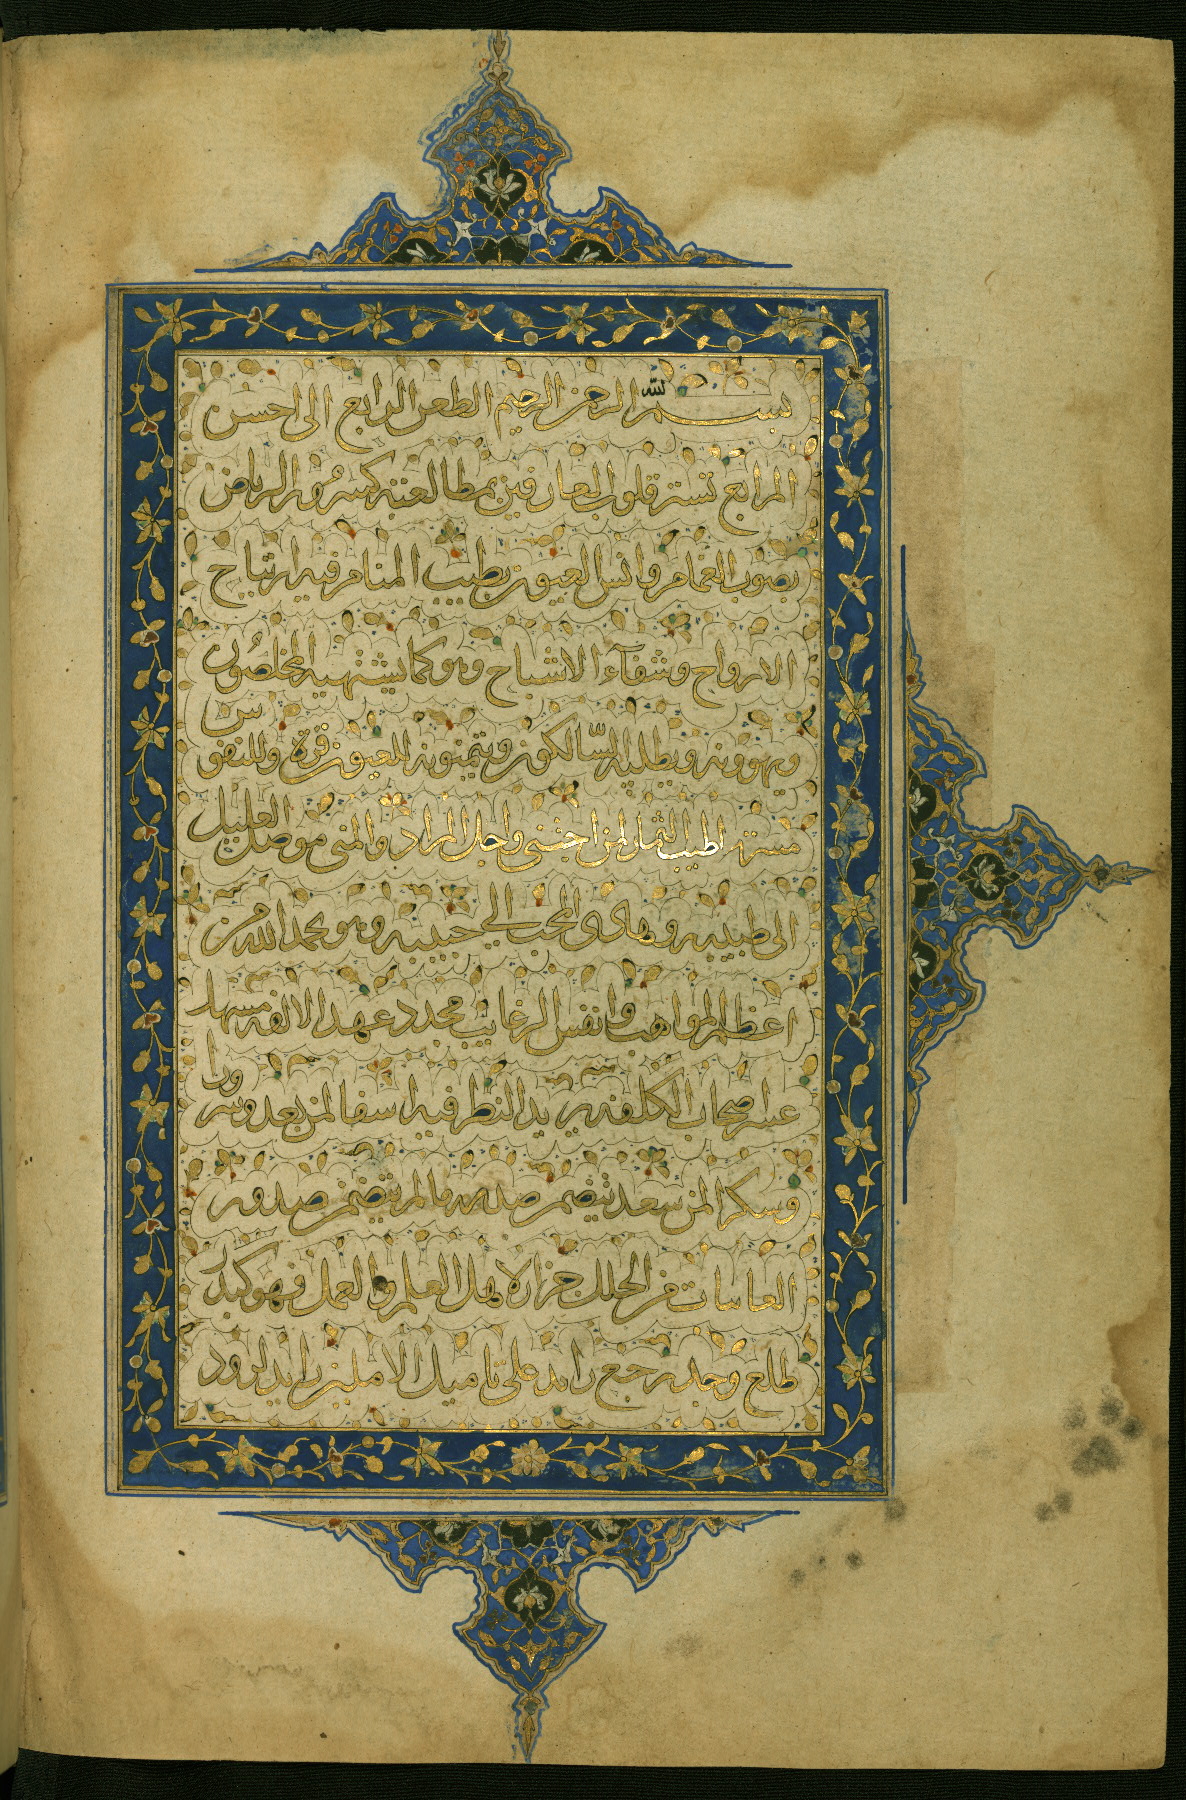 بسم الله الرحمن الرحيم الظعن الرابع الى احسن
المرابع تستر قلوب العارفين بمطالعته كسرور الرياض
بصوب الغمام وانس العيون بطيب المنام فيه ارتياح
الارواح وشفآء الاشباح وهو كما يشتهيه المخلصون
ويهوونه ويطلبه السّالكون ويتمنونه للعيون قرة وللنفوس
مسرة اطيب الثمار لمن اجتنى واجل المراد والمنى موصل العليل
الى طبيبه وهادى المحب الى حبيبه وهو بحمد الله من
اعظم المواهب وانفس الرغائب مجدد عهد الالفه مسهد
عند اصحاب الكلفه يزيد النظر فيه اسفا لمن بعد وسرورا
وشكرا لمن سعد تضمن صدره ما لم يتضمن صدور
الغانيات من الحلل جزاء لاهل العلم والعمل فهو كبدر
طلع وجد رجع زايد على تاميل الاملين رايد لرود